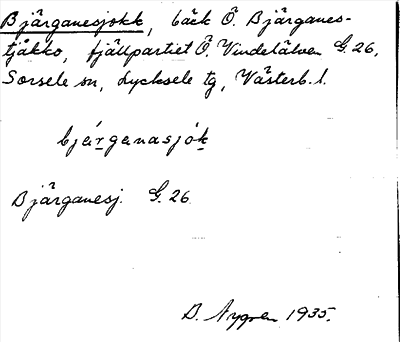 Bjärganesjokk, bäck Ö. Bjärganes-
tjåkko, fjällpartiet Ö. Vindelälven G. 26,
Sorsele sn, Lycksele tg, Västerb. l.
bjárganasjók
Bjärganesj. G. 26
B. Nygren 1935.